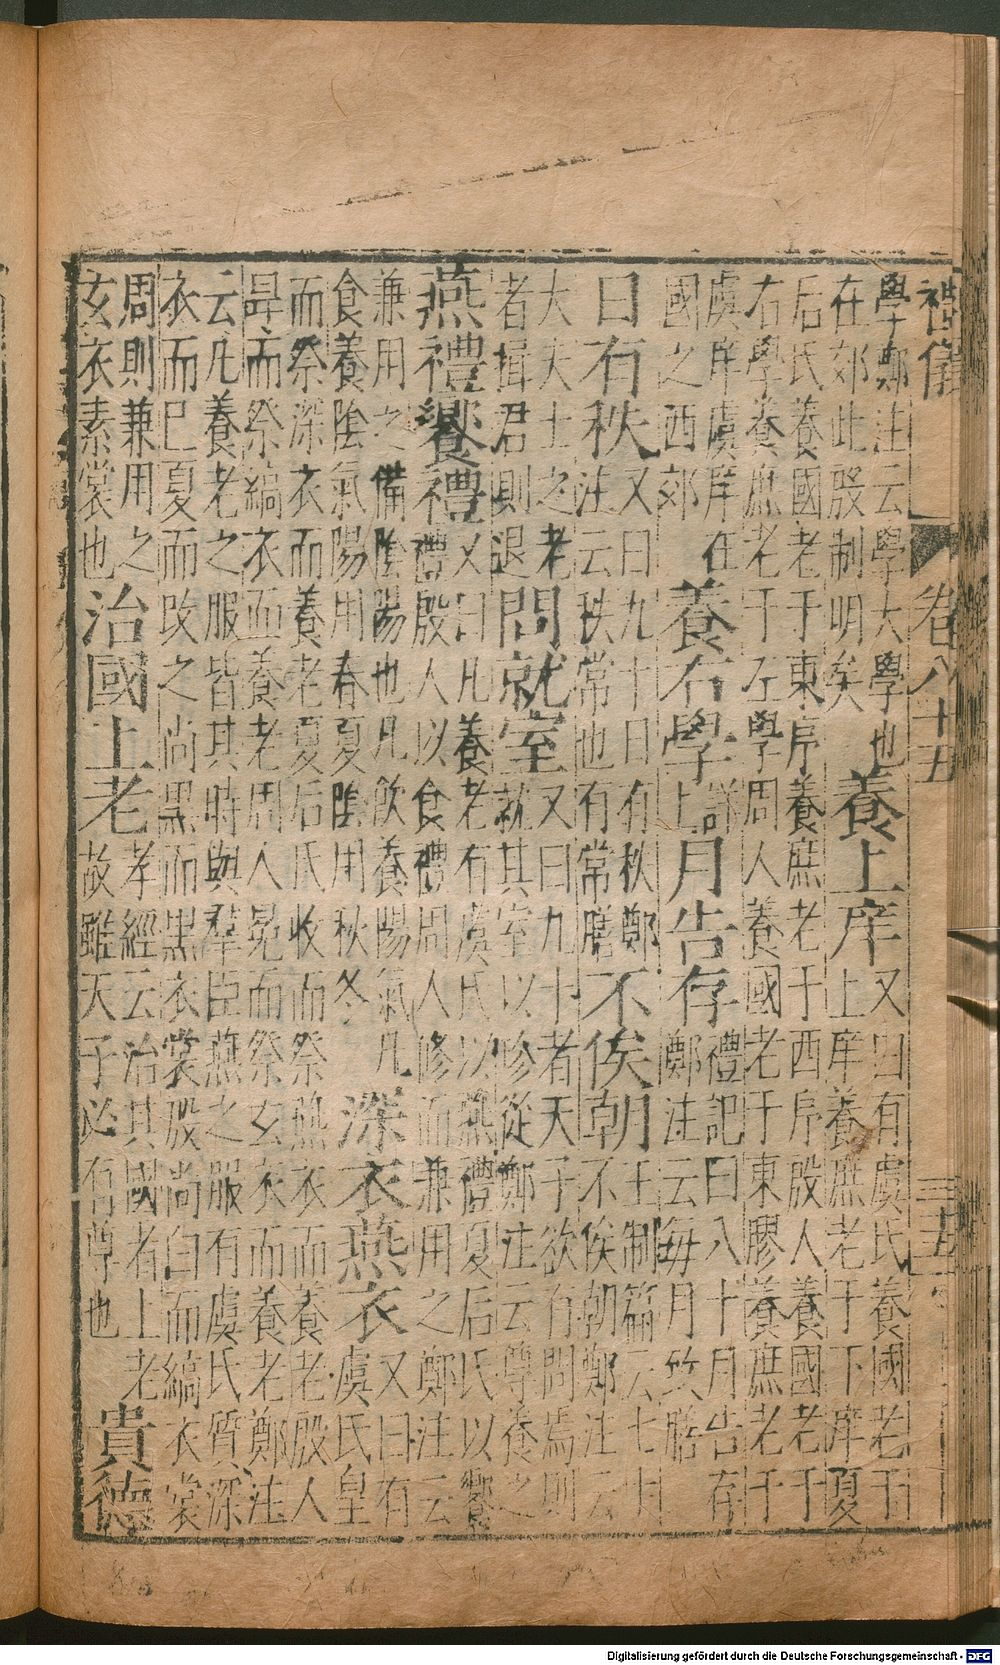 禮儀 卷八十五 三十五
學鄭注云學大學也
在郊此殷制明矣
養上庠
又曰有虞氏養國老于
上庠養庶老于下庠夏
后氏養國老于東序養庶老于西序殷人養國老于
右學養庶老于左學周人養國老于東膠養庶老于
虞庠虞庠在
國之西郊
養右學
詳
上
月告存
禮記曰八十月告有
鄭注云每月致膳
日有秩
又曰九十日有秋鄭
注云秩常也有常膳
不俟朝
王制篇云七十
不俟朝鄭注云
大夫士之老
者揖君則退
問就室
又曰九十者天子欲有問焉則
就其室以珍從鄭注云尊養之
燕禮饗禮
又曰凡養老有虞氏以燕禮夏后氏以饗
禮殷人以食禮周人修而兼用之鄭注云
兼用之備陰陽也凡飲養陽氣凡
食養陰氣陽用春夏陰用秋冬
深衣燕衣
又曰有
虞氏皇
而祭深衣而養老夏后氏收而祭燕衣而養老殷人
冔而祭縞衣而養老周人冕而祭玄衣而養老鄭注
云凡養老之服皆其時與羣臣燕之服有虞氏質深
衣而已夏而改之尚黑而黑衣裳殷尚白而縞衣裳
周則兼用之
玄衣素裳也
治國上老
孝經云治其國者上老
故雖天子必有尊也
貴德
Digitalisierung gefördert durch die Deutsche Forschungsgemeinschaft - DFG